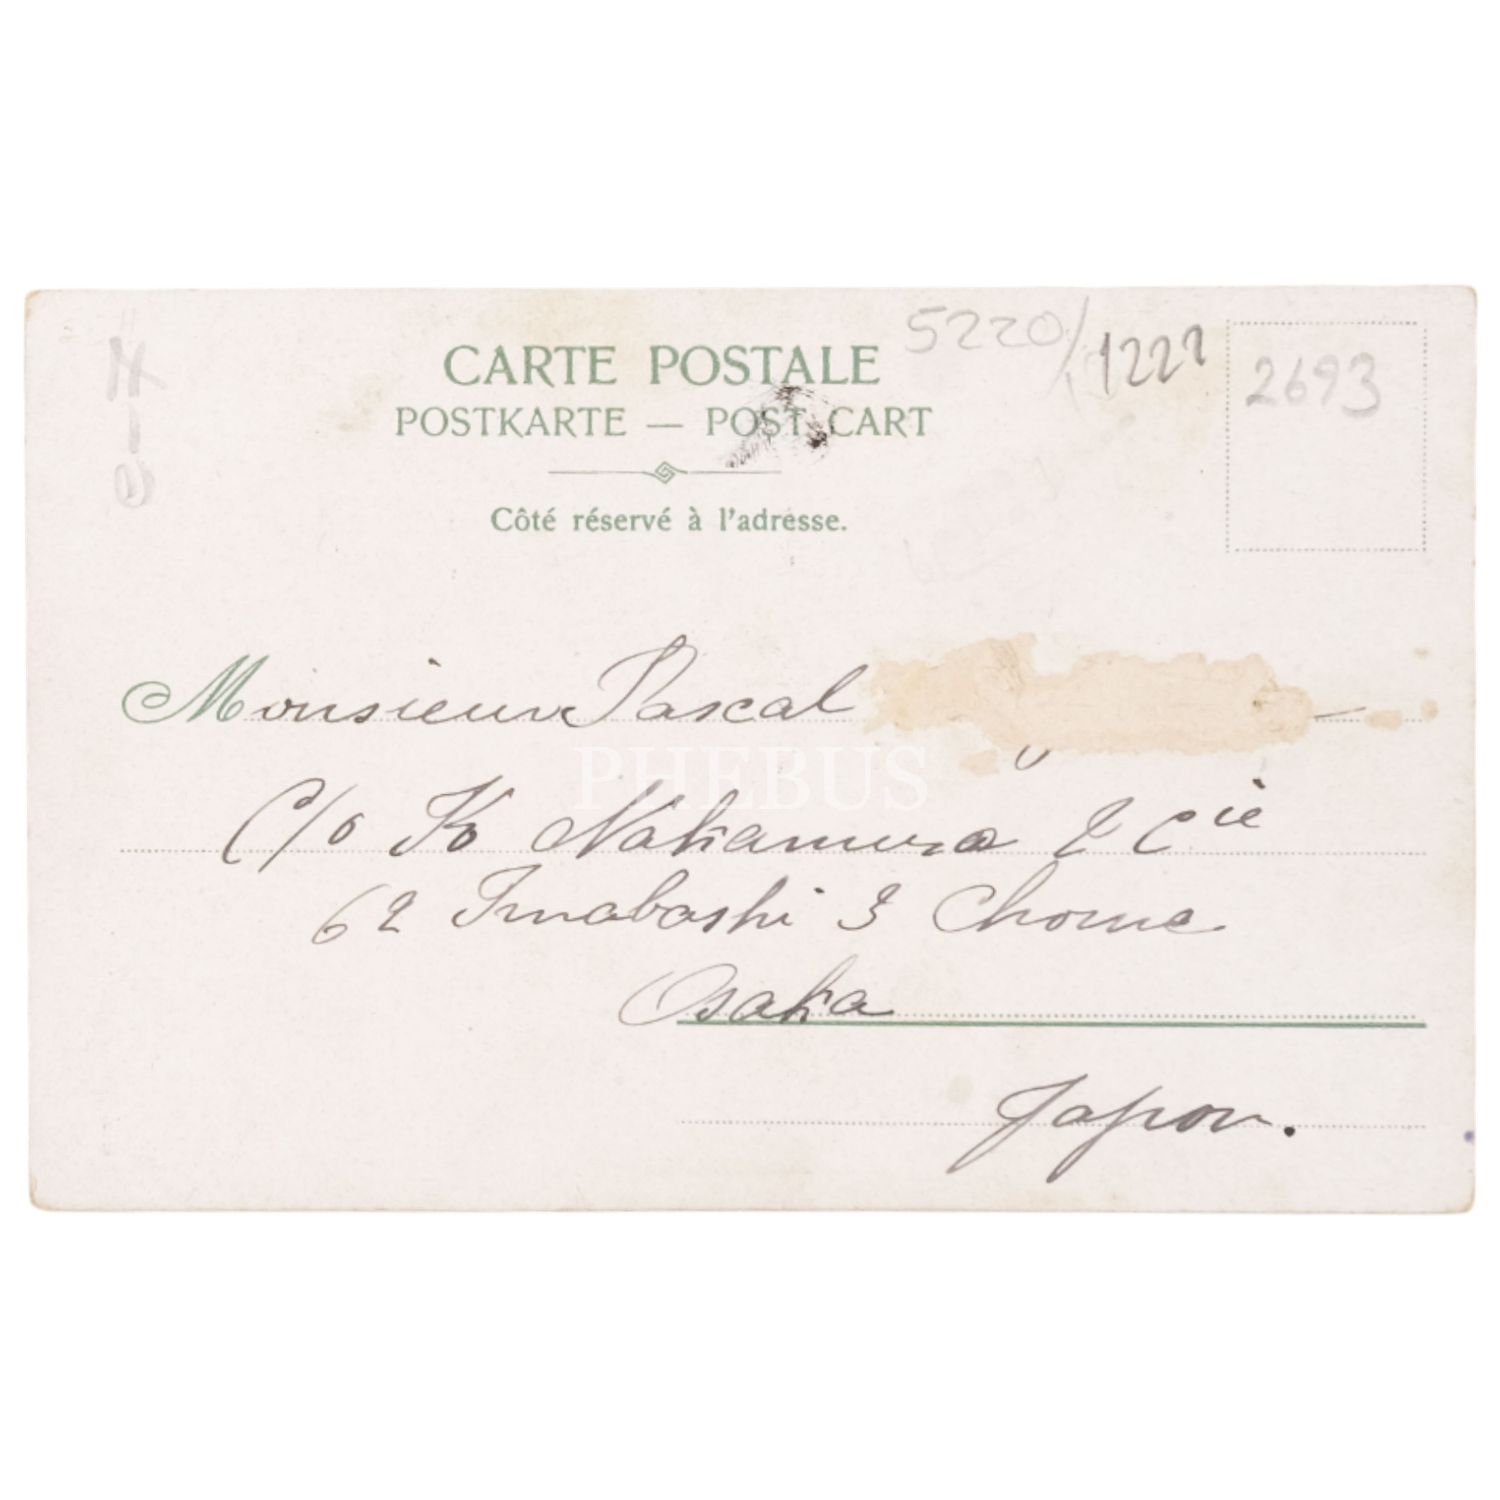 CARTE POSTALE
POSTKARTE — POST CART
Côté réservé à l'adresse.
5220/1222
2693
Monsieur Pascal
PHEBUS
C/o K Nakamura & Cie
62 Imabashi 3 Chome
Osaka
Japon.